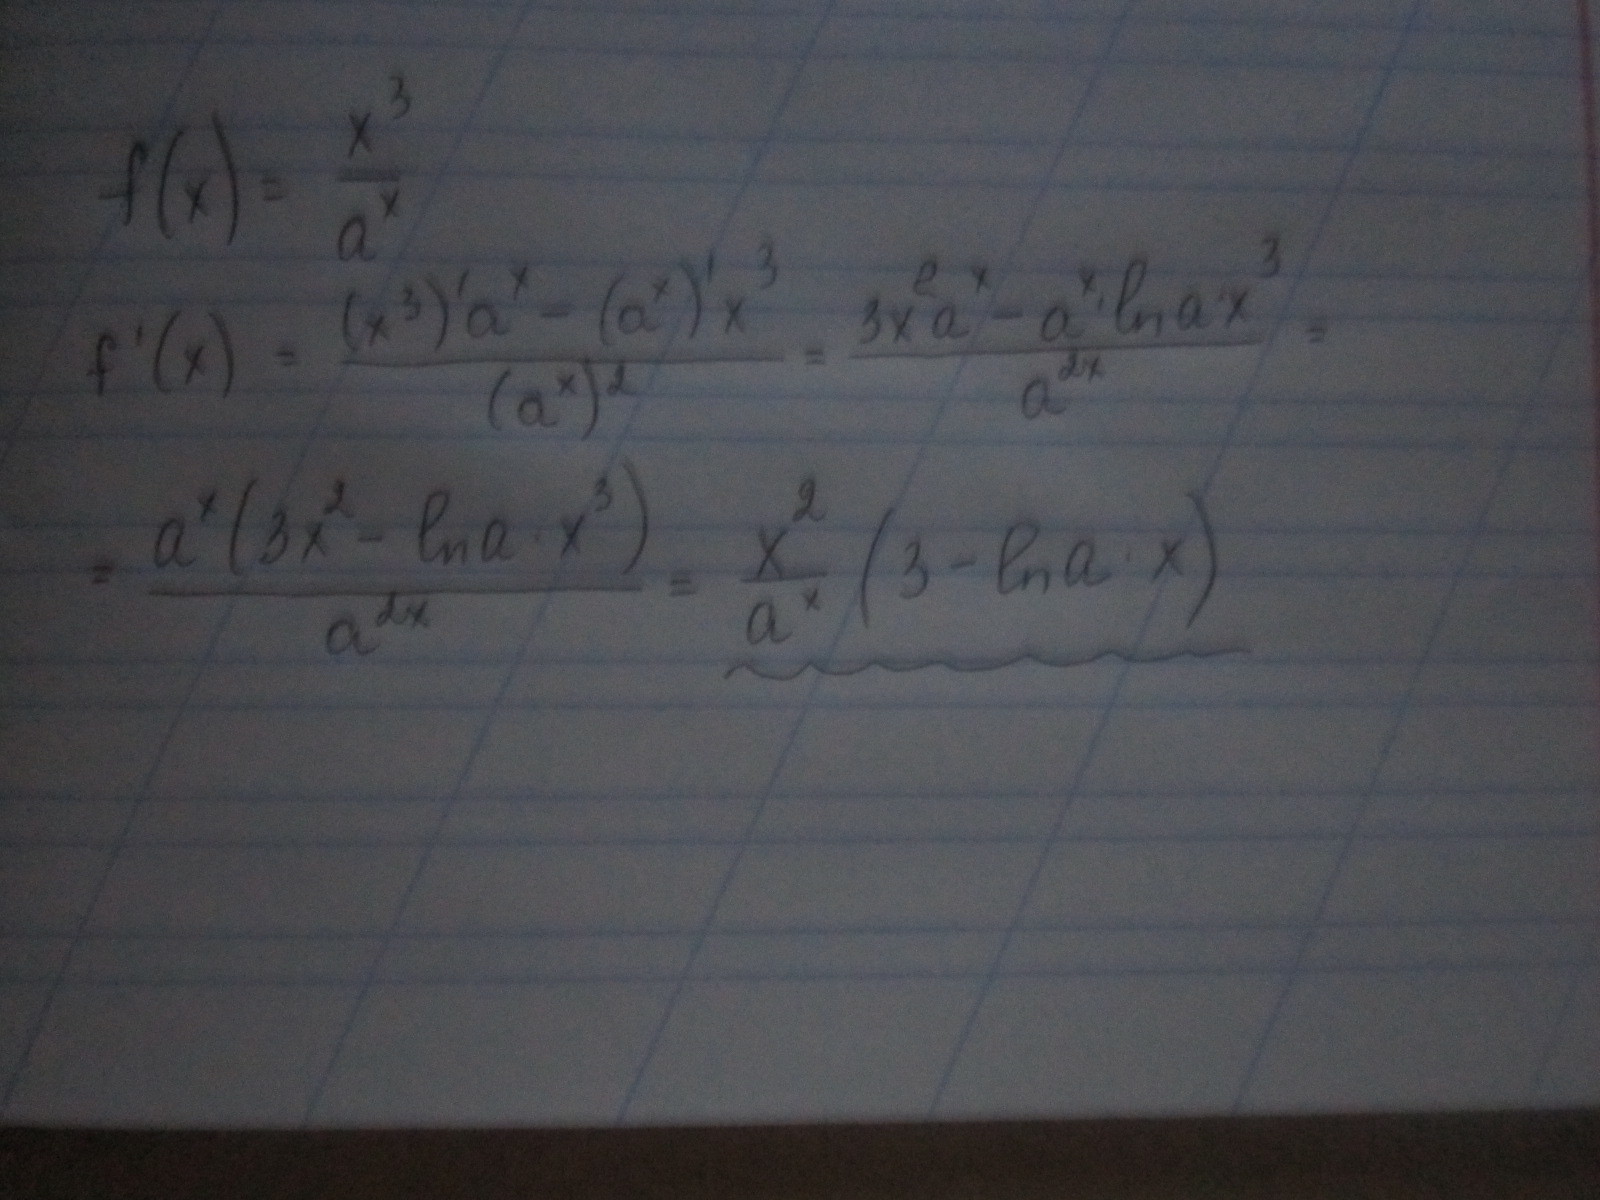 f(x) = x³/aˣ
f'(x) = ((x³)'aˣ - (aˣ)'x³)/(aˣ)² = (3x²aˣ - aˣ·ln a·x³)/a²ˣ =
= aˣ(3x² - ln a·x³)/a²ˣ = x²/aˣ (3 - ln a·x)